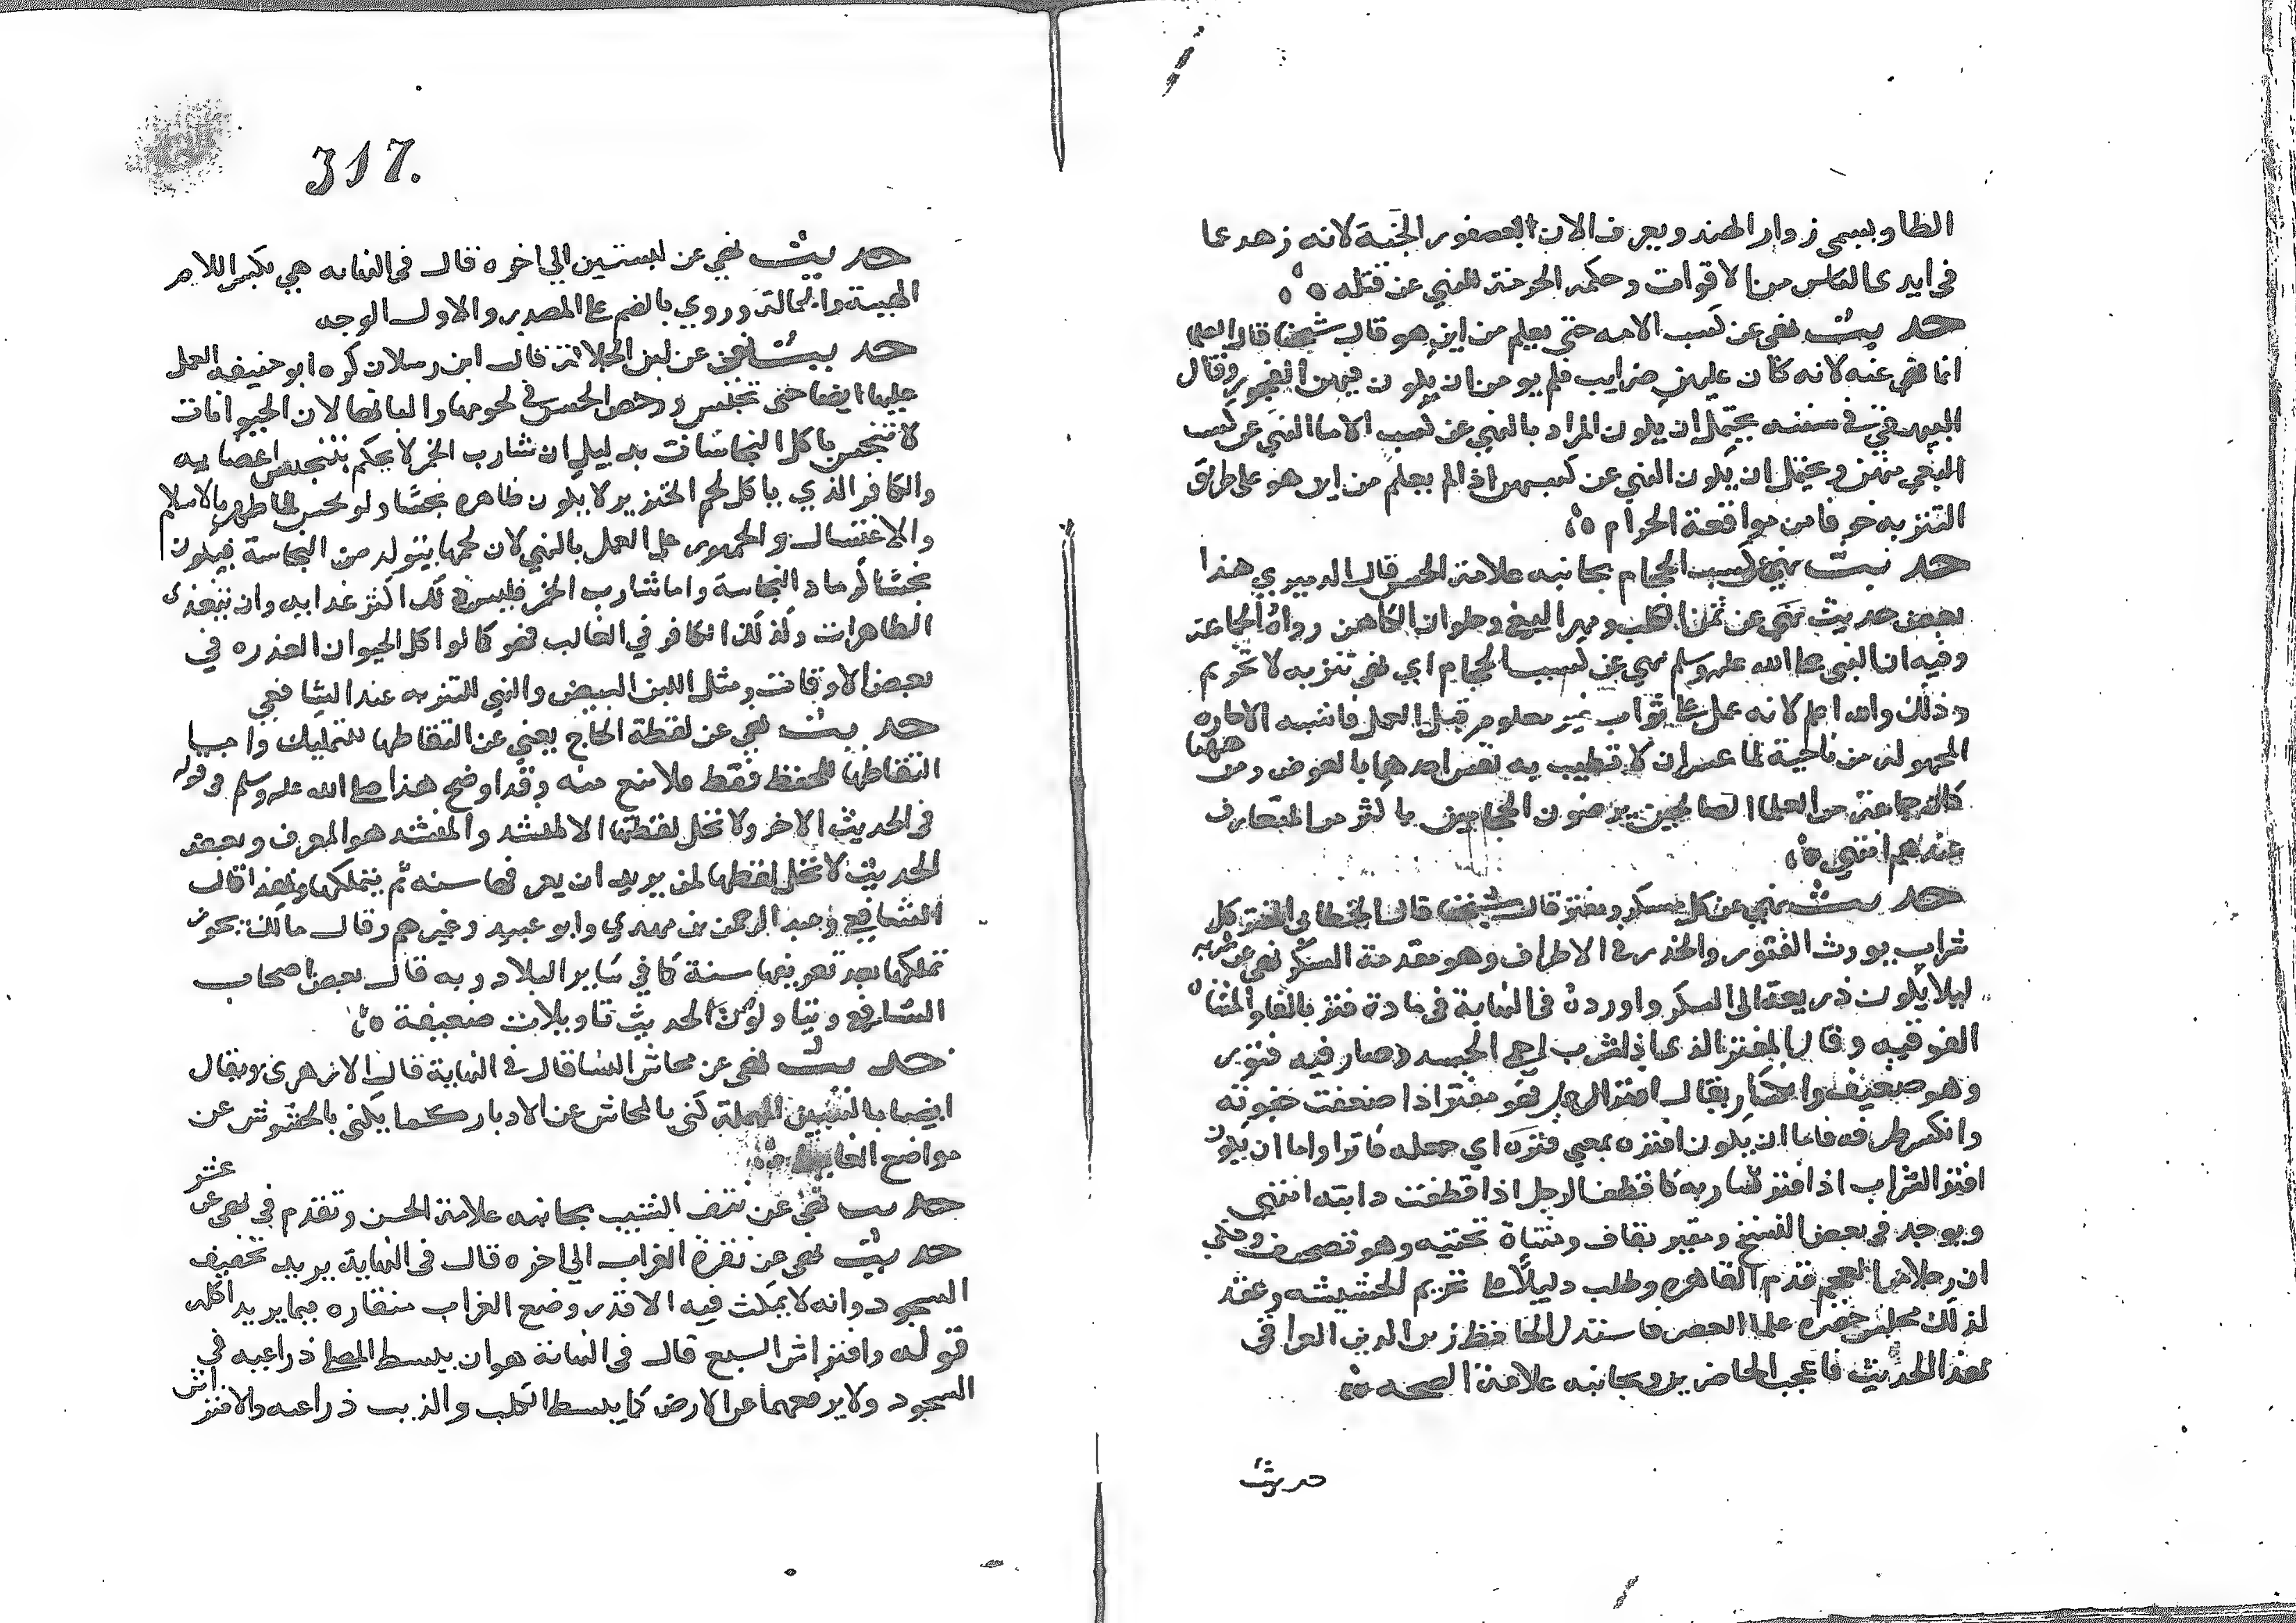 الظا ويسمى زوار الهند ويعرف الان بعصفور الجنة لانه زهد عما
في ايدي الناس من الاقوات وحكمه الحرمة للنهي عن قتله ه
حديث نهى عن كسب الامه حتى يعلم من اين هو قال شيخنا قال العلما
انما نهى عنه لانه كان عليهن ضرايب فلم يومن ان يكون فيهن الفجور وقال
البيهقي في سننه يحتمل ان يكون المراد بالنهي عن كسب الاما النهي عن كسب
البغي منهن ويحتمل ان يكون النهي عن كسبهن اذا لم يعلم من اين هو على طريق
التنزيه خوفا من مواقعة الحرام ه
حديث نهي عن كسب الحجام بجانبه علامة الحسن قال الدميري هذا
بعض حديث نهي عن ثمن الكلب ومهر البغي وحلوان الكاهن رواه الجماعة
وفيه ان النبي صلى الله عليه وسلم نهي عن كسب الحجام اي نهي تنزيه لا تحريم
وذلك والله اعلم لانه عمل على ثواب غير معلوم قبل العمل فاشبه الاجاره
المجهوله من ناحية لما عسى ان لا تطيب به نفس احدهما بالعوض ومن ههنا
كان جماعة من العلما الصالحين يرضون الحجامين باكثر من المتعارف
عندهم انتهى ه
حديث نهي عن كل مسكر ومفتر قال شيخنا قال الخطابي المفتر كل
شراب يورث الفتور والخدر في الاطراف وهو مقدمة السكر نهي عن شربه
ليلا يكون ذريعة الى السكر واورده في النهاية في مادة فتر بالفا والمثناه
الفوقيه وقال المفتر الذي اذا شرب احمى الجسد وصار فيه فتور
وهو ضعيف وانكسار يقال افتر الرجل فهو مفتر اذا ضعفت جفونه
وانكسر طرفه فاما ان يكون افتره بمعنى فتره اي جعله فاترا واما ان يكون
افتر الشراب اذا افتر شاربه كاقطف الرجل اذا قطفت دابته انتهى
ويوجد في بعض النسخ ومقير بقاف ومثناة تحتيه وهو تصحيف وحكي
ان رجلا من العجم قدم القاهره وطلب دليلا على تحريم الحشيشه وعقد
لذلك مجلس حضره علما العصر فاستدل الحافظ زين الدين العراقي
بهذا الحديث فاعجب الحاضرين وبجانبه علامة الصحه ه
حديث
317.
حديث نهي عن لبستين الي اخره قال في النهايه هي بكسر اللام
الهيئة والحالة وروي بالضم على المصدر والاول الوجه
حديث نهي عن لبن الجلالة قال ابن رسلان كره ابو حنيفه العمل
عليها ايضا حتى تحبس ورخص الحسن في لحومها والبانها لان الحيوانات
لا تنجس باكل النجاسات بدليل ان شارب الخمر لا يحكم بتنجيس اعضايه
والكافر الذي ياكل لحم الخنزير لا يكون ظاهره نجسا ولو نجس لما طهر بالاسلام
والاغتسال والجمهور على العمل بالنهي لان لحمها يتولد من النجاسة فيكون
نجسا كرماد النجاسة واما شارب الخمر فليس ذلك اكثر غدايه وان يتغذى
الطاهرات وكذلك الكافر في الغالب فهو كما لو اكل الحيوان العذره في
بعض الاوقات ومثل اللبن البيض والنهي للتنزيه عند الشافعي
حديث نهي عن لقطة الحاج يعني عن التقاطها للتمليك واجب
التقاطها للحفظ فقط فلا منع منه وقد اوضح هذا صلى الله عليه وسلم في قوله
في الحديث الاخر ولا تحل لقطتها الا لمنشد والمنشد هو المعرف وبعضه
الحديث لا تحل لقطتها لمن يريد ان يعرفها سنه ثم يتملكها وبهذا قال
الشافعي وعبد الرحمن بن مهدي وابو عبيد وغيرهم وقال مالك يجوز
تملكها بعد تعريفها سنة كما في سَاير البلاد وبه قال بعض اصحاب
الشافعي ويتاولون الحديث تاويلات ضعيفة ه
حديث نهى عن محاش النسا قال في النهاية قال الازهرى ويقال
ايضا بالسين المهملة كنى بالمحاش عن الادبار كما يكنى بالحشوش عن
مواضع الغايط ه
حديث نهى عن نتف الشيب بجانبه علامة الحسن وتقدم في نهى عن عشر
حديث نهى عن نقرة الغراب الي اخره قال في النهاية يريد تخفيف
السجود وانه لا يمكث فيه الا قدر وضع الغراب منقاره فيما يريد اكله
قوله وافتراش السبع قال في النهاية هو ان يبسط المصلي ذراعيه في
السجود ولا يرفعهما عن الارض كما يبسط الكلب والذيب ذراعيه والافتراش